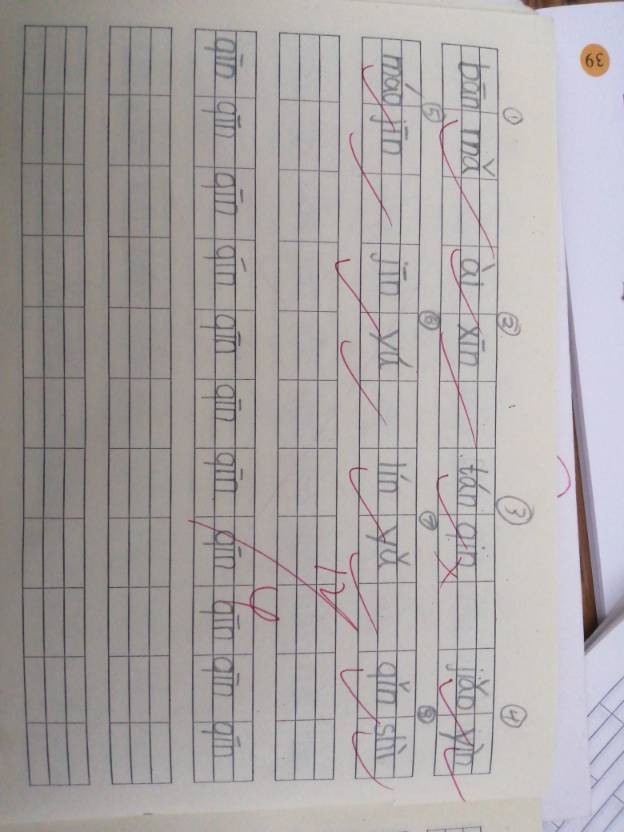 39
① ② ③ ④
bān mǎ ài xīn tán qin jiǎo yìn
⑤ ⑥ ⑦ ⑧
máo jīn jīn yú lín yǔ qǐn shì
qīn qīn qīn qīn qīn qīn qīn qīn qīn qīn qīn